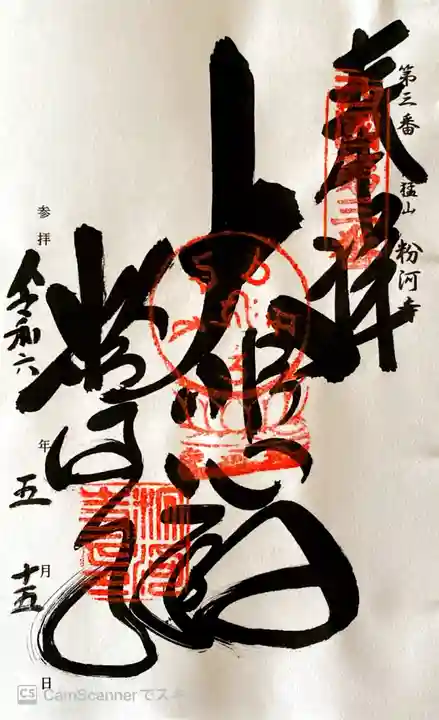 第三番
猛山 粉河寺
奉拝
大悲殿
粉河寺
参拝 令和六年五月十五日
CS CamScannerでスキ